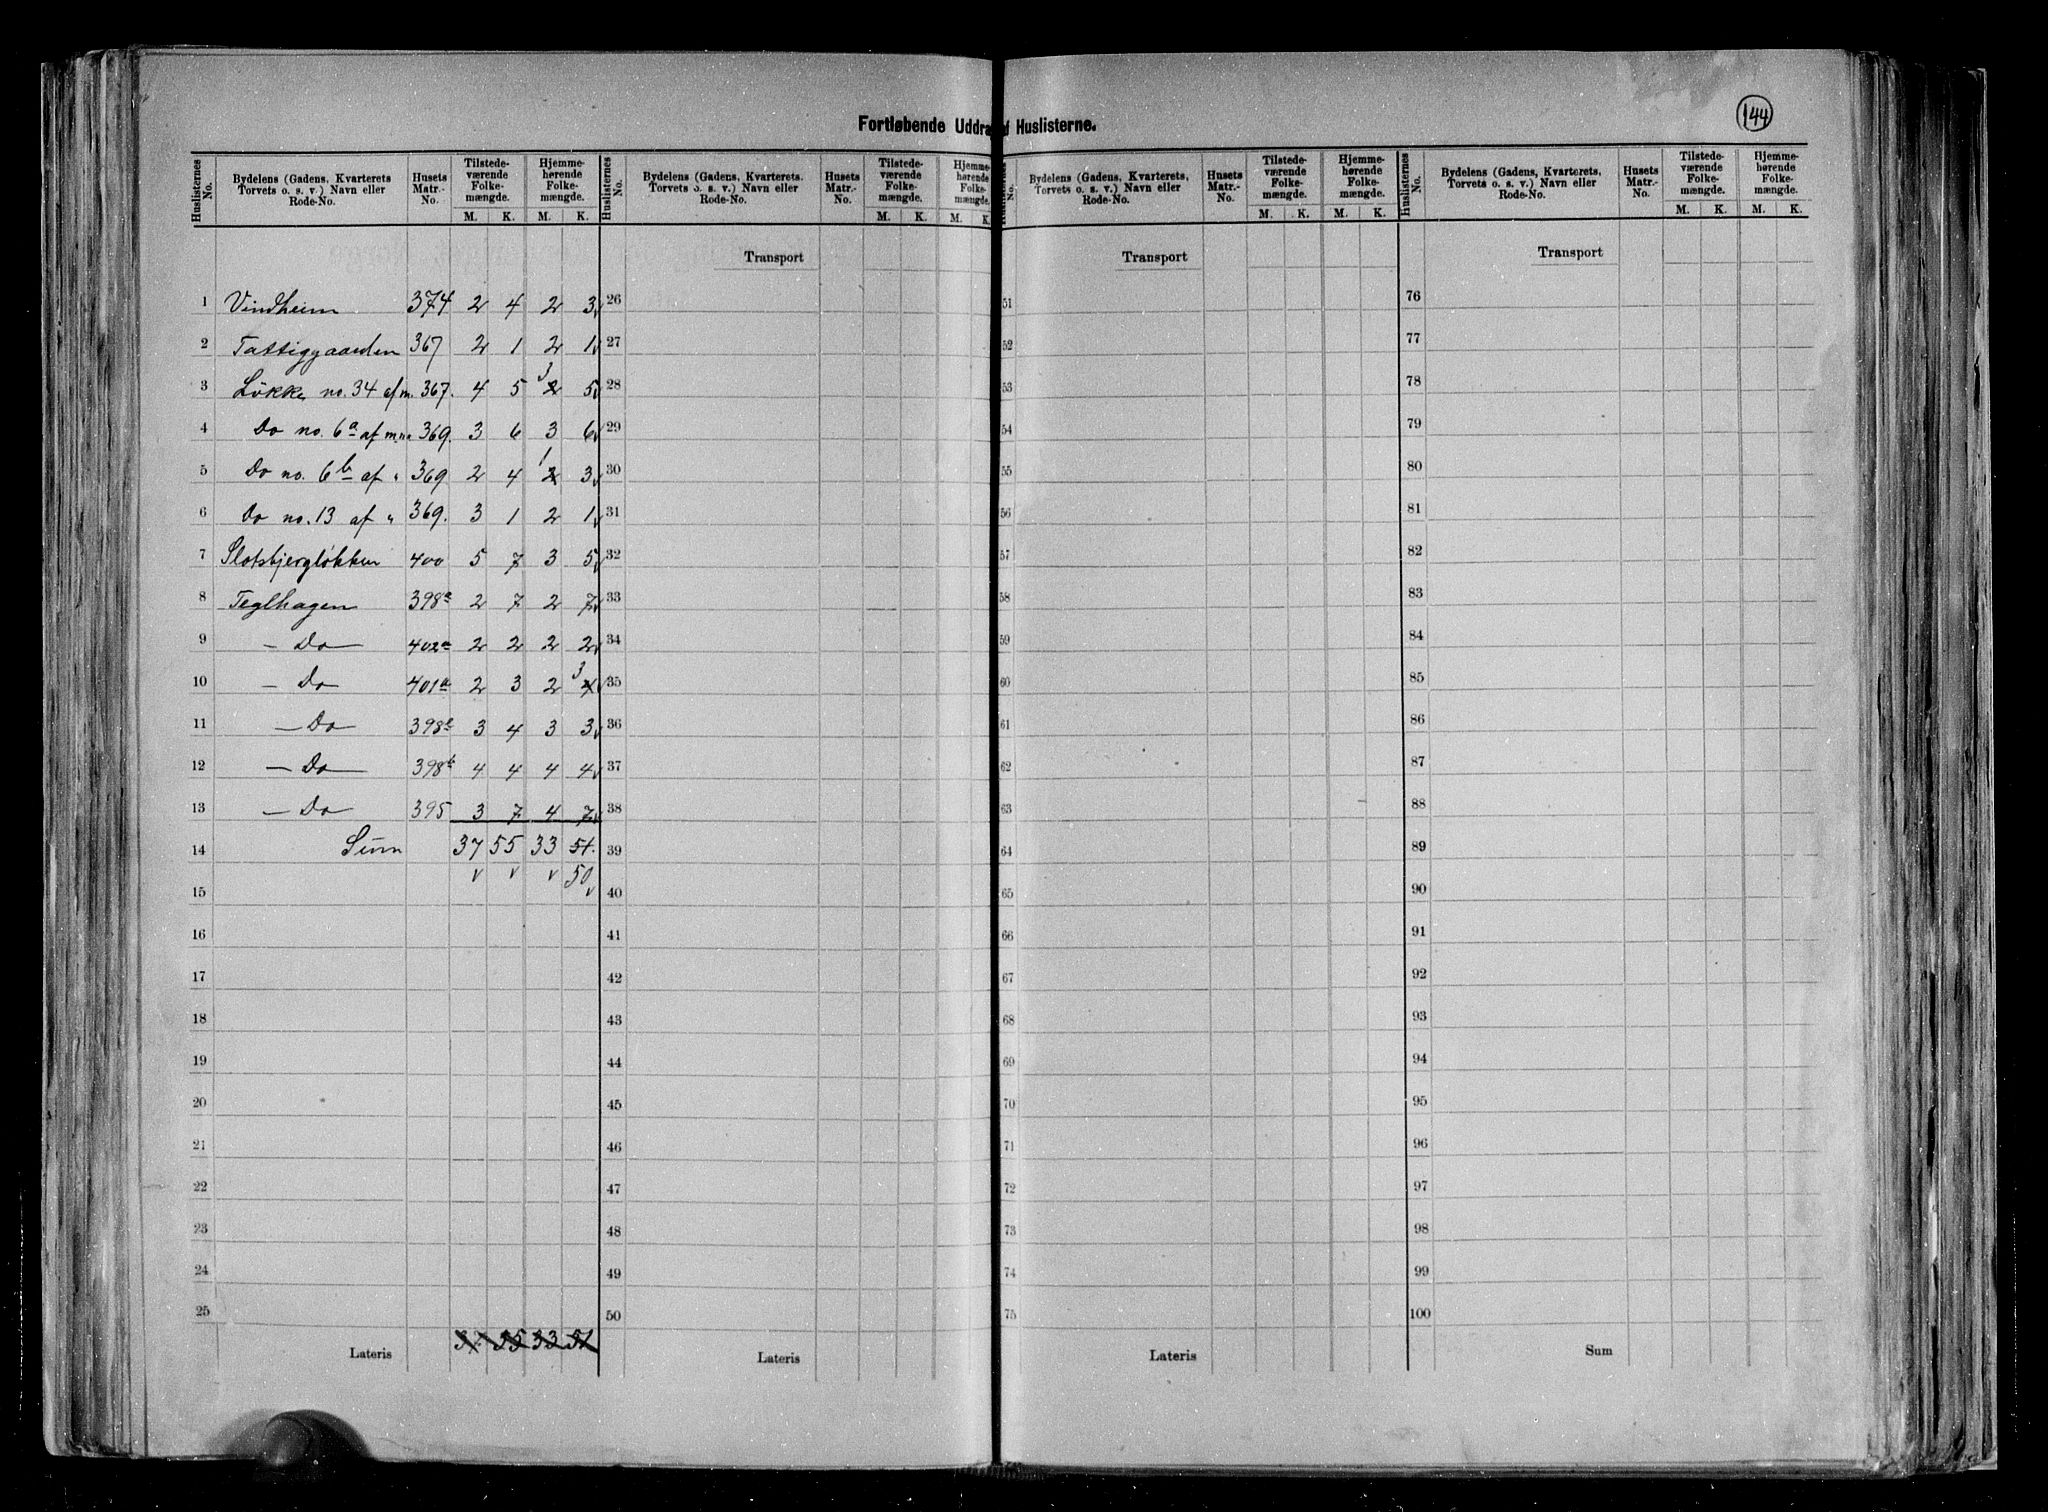 144
Fortløbende Uddrag af Huslisterne.
Huslisternes No. | Bydelens (Gadens, Kvarterets, Torvets o. s. v.) Navn eller Rode-No. | Husets Matr.-No. | Tilstedeværende Folkemængde. M. K. | Hjemmehørende Folkemængde. M. K.
1 Vindheim 374 2 4 2 3
2 Fattiggaarden 367 2 1 2 1
3 Løkke no. 34 af m. 367. 4 5 2 3 5
4 Do no. 6a af m.no 369. 3 6 3 6
5 Do no. 6b af " 369 2 4 2 1 3
6 Do no. 13 af " 369. 3 1 2 1
7 Slotsbjergløkken 400 5 7 3 5
8 Teglhagen 398a 2 7 2 7
9 — Do — 402a 2 2 2 2
10 — Do 401a 2 3 2 4 3
11 — Do 398c 3 4 3 3
12 — Do — 398b 4 4 4 4
13 — Do 395 3 7 4 7
14 Sum 37 55 33 51.
50
15
16
17
18
19
20
21
22
23
24
25
Lateris 37 55 33 51
Huslisternes No. | Bydelens (Gadens, Kvarterets, Torvets o. s. v.) Navn eller Rode-No. | Husets Matr.-No. | Tilstedeværende Folkemængde. M. K. | Hjemmehørende Folkemængde. M. K.
Transport
26
27
28
29
30
31
32
33
34
35
36
37
38
39
40
41
42
43
44
45
46
47
48
49
50
Lateris
Huslisternes No. | Bydelens (Gadens, Kvarterets, Torvets o. s. v.) Navn eller Rode-No. | Husets Matr.-No. | Tilstedeværende Folkemængde. M. K. | Hjemmehørende Folkemængde. M. K.
Transport
51
52
53
54
55
56
57
58
59
60
61
62
63
64
65
66
67
68
69
70
71
72
73
74
75
Lateris
Huslisternes No. | Bydelens (Gadens, Kvarterets, Torvets o. s. v.) Navn eller Rode-No. | Husets Matr.-No. | Tilstedeværende Folkemængde. M. K. | Hjemmehørende Folkemængde. M. K.
Transport
76
77
78
79
80
81
82
83
84
85
86
87
88
89
90
91
92
93
94
95
96
97
98
99
100
Sum